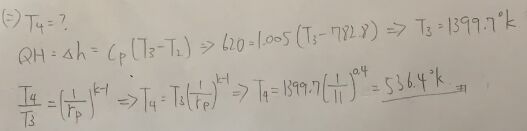 (=) T4 = ?
QH = Δh = Cp(T3-T2) => 620=1.005(T3-782.8) => T3=1399.7°k
T4/T3=(1/rp)^k-1 => T4=T3(1/rp)^k-1 => T4=1399.7(1/11)^0.4=536.4°k